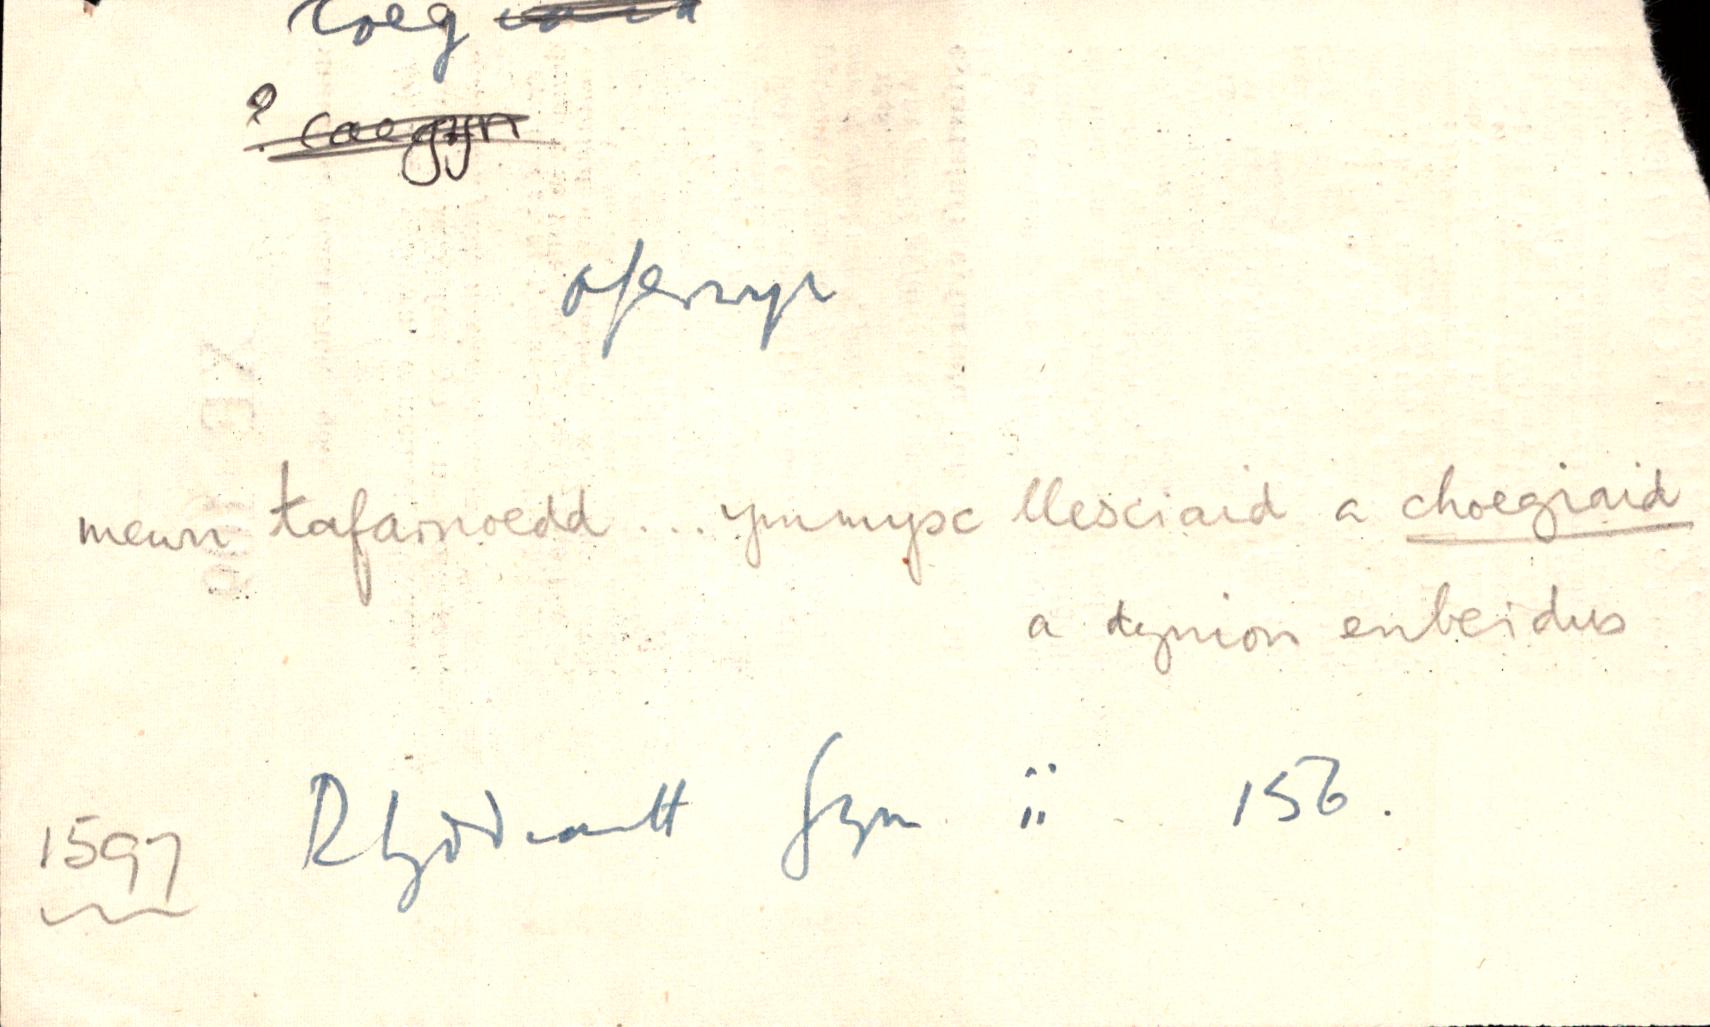 coeg iaid
? coegyn
oferwyr
mewn tafarnoedd ... ymmysc llesciaid a choegiaid
a dynion enbeidus
1597 Rhyddiaith Gym ii 156.